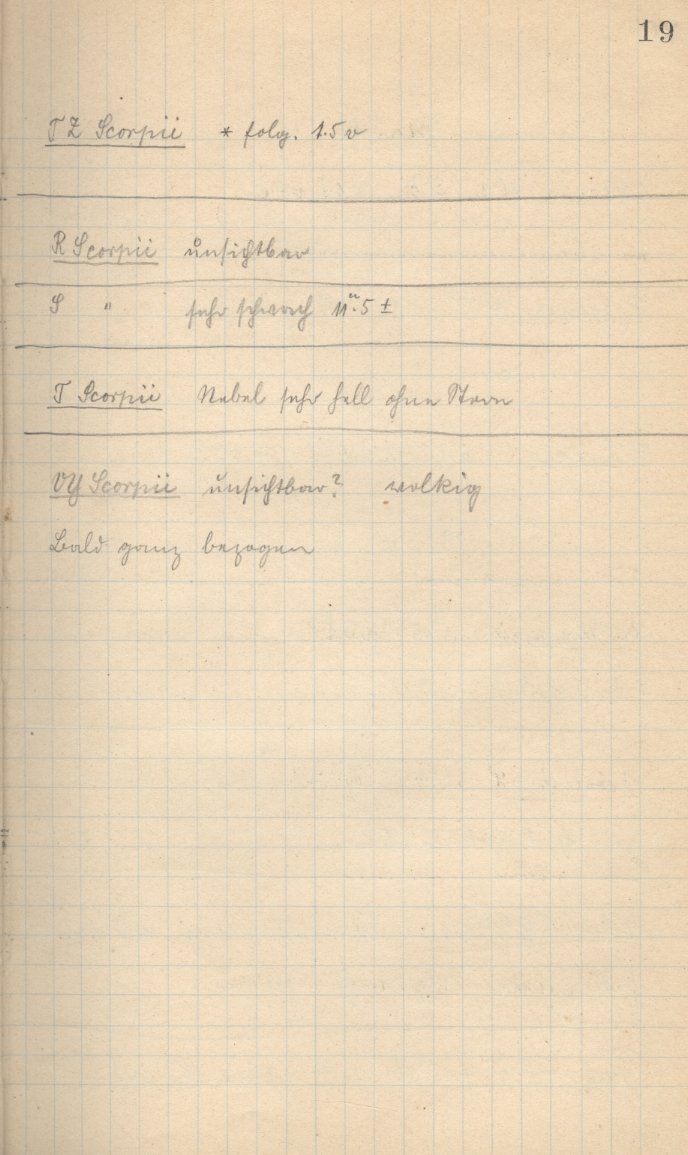 19
TZ Scorpii * folg. 1.5 v
R Scorpii unsichtbar
S " sehr schwach 11ᵐ.5 ±
T Scorpii Nebel sehr hell ohne Stern
VY Scorpii unsichtbar? wolkig
Bald ganz bezogen